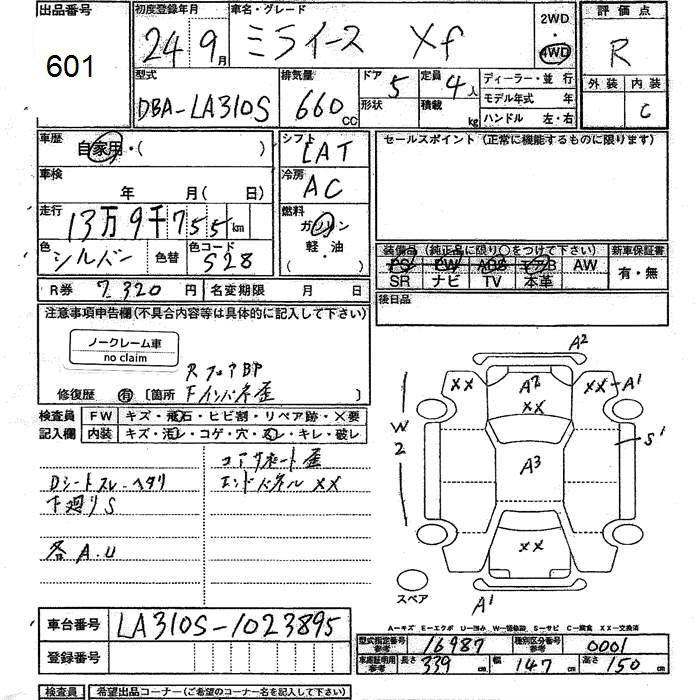 出品番号 初度登録年月 車名・グレード 2WD 評価点
601 24年9月 ミライース Xf ・ 4WD R
型式 排気量 ドア 5 定員 4人 ディーラー・並行 外装 内装
DBA-LA310S 660cc 形状 積載 kg モデル年式 年 C
ハンドル 左・右
車歴 自家用・( ) シフト LAT セールスポイント (正常に機能するものに限ります)
車検 年 月( 日) 冷房 AC
走行 13万9千755km 燃料 ガソリン
色 シルバー 色替 色コード S28 軽・油
( ) 装備品 (純正品に限り○をつけて下さい) 新車保証書
PS PW ABS エアB AW 有・無
SR ナビ TV 本革
R券 7,320円 名変期限 月 日 後日品
注意事項申告欄(不具合内容等は具体的に記入して下さい)
ノークレーム車
no claim
RフロアBP
修復歴 有 〔箇所 Fインパネ歪 〕
検査員 FW キズ・飛石・ヒビ割・リペア跡・×要
記入欄 内装 キズ・汚レ・コゲ・穴・スレ・キレ・破レ
コアサポート歪
Dシートスレ・ヘタリ エンドパネルXX
下廻りS
各A.U
A2
XX A2 XX-A1
XX
W2 A3 S1
XX
スペア A1
A=キズ E=エクボ U=凹み W=補修跡 S=サビ C=腐食 XX=交換済
車台番号 LA310S-1023895
登録番号
型式指定番号 参考 16987 種別区分番号 参考 0001
車庫証明用 参考 長さ 339cm 幅 147cm 高さ 150cm
検査員 希望出品コーナー(ご希望のコーナー名を記入して下さい)